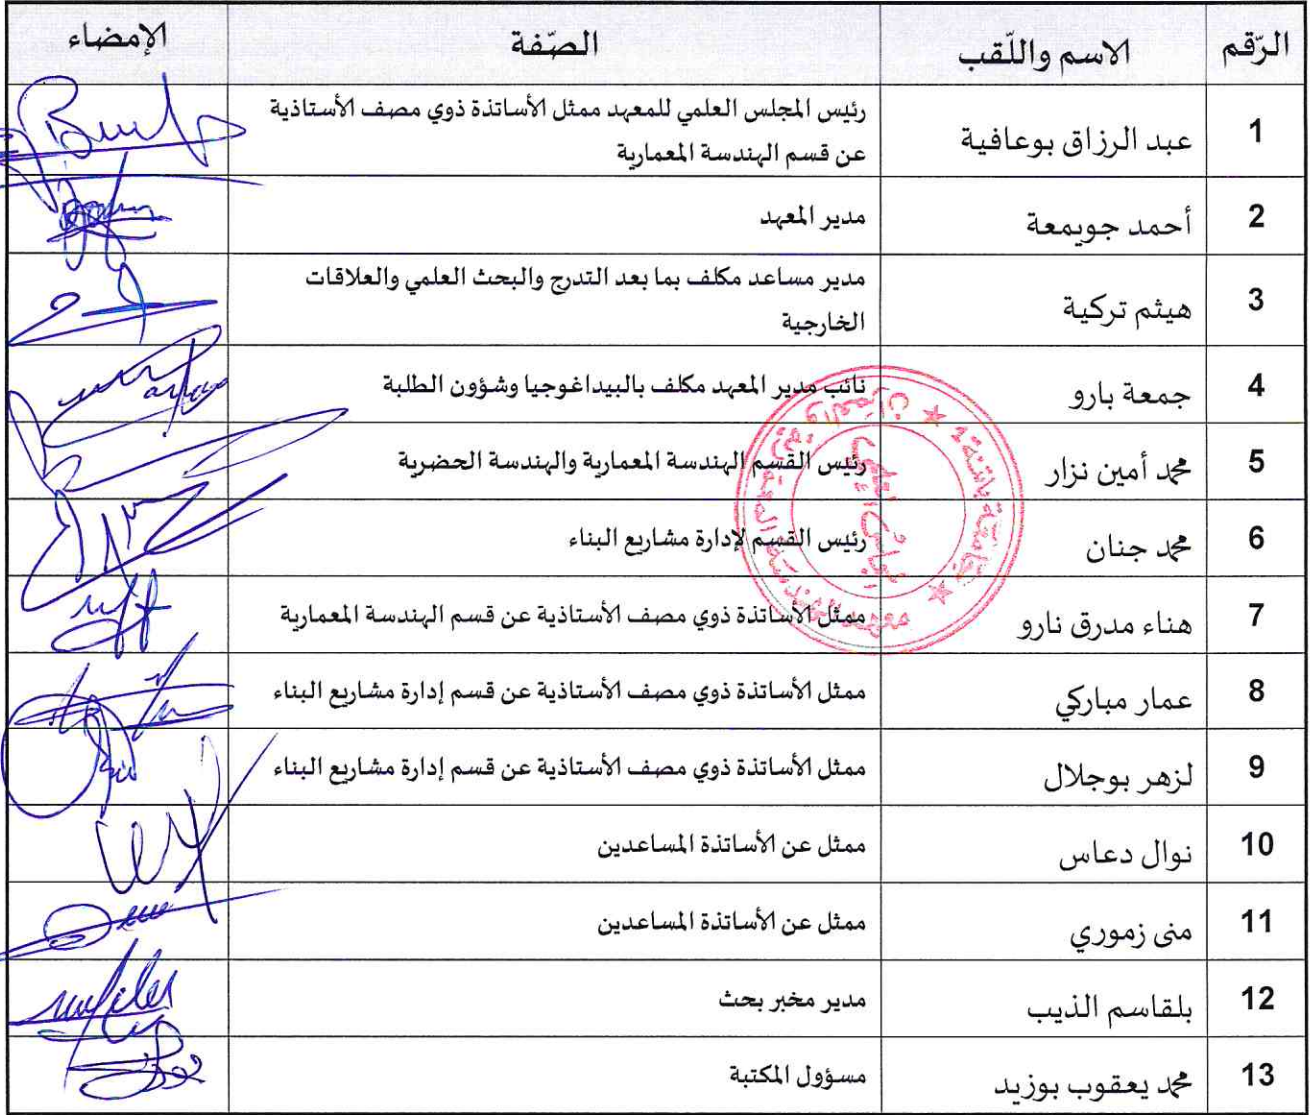 الرّقم الاسم واللّقب الصّفة الإمضاء
1 عبد الرزاق بوعافية رئيس المجلس العلمي للمعهد ممثل الأساتذة ذوي مصف الأستاذية
عن قسم الهندسة المعمارية
2 أحمد جويمعة مدير المعهد
3 هيثم تركية مدير مساعد مكلف بما بعد التدرج والبحث العلمي والعلاقات
الخارجية
4 جمعة بارو نائب مدير المعهد مكلف بالبيداغوجيا وشؤون الطلبة
5 محمد أمين نزار رئيس القسم الهندسة المعمارية والهندسة الحضرية
6 محمد جنان رئيس القسم لإدارة مشاريع البناء
7 هناء مدرق نارو ممثل الأساتذة ذوي مصف الأستاذية عن قسم الهندسة المعمارية
8 عمار مباركي ممثل الأساتذة ذوي مصف الأستاذية عن قسم إدارة مشاريع البناء
9 لزهر بوجلال ممثل الأساتذة ذوي مصف الأستاذية عن قسم إدارة مشاريع البناء
10 نوال دعاس ممثل عن الأساتذة المساعدين
11 منى زموري ممثل عن الأساتذة المساعدين
12 بلقاسم الذيب مدير مخبر بحث
13 محمد يعقوب بوزيد مسؤول المكتبة